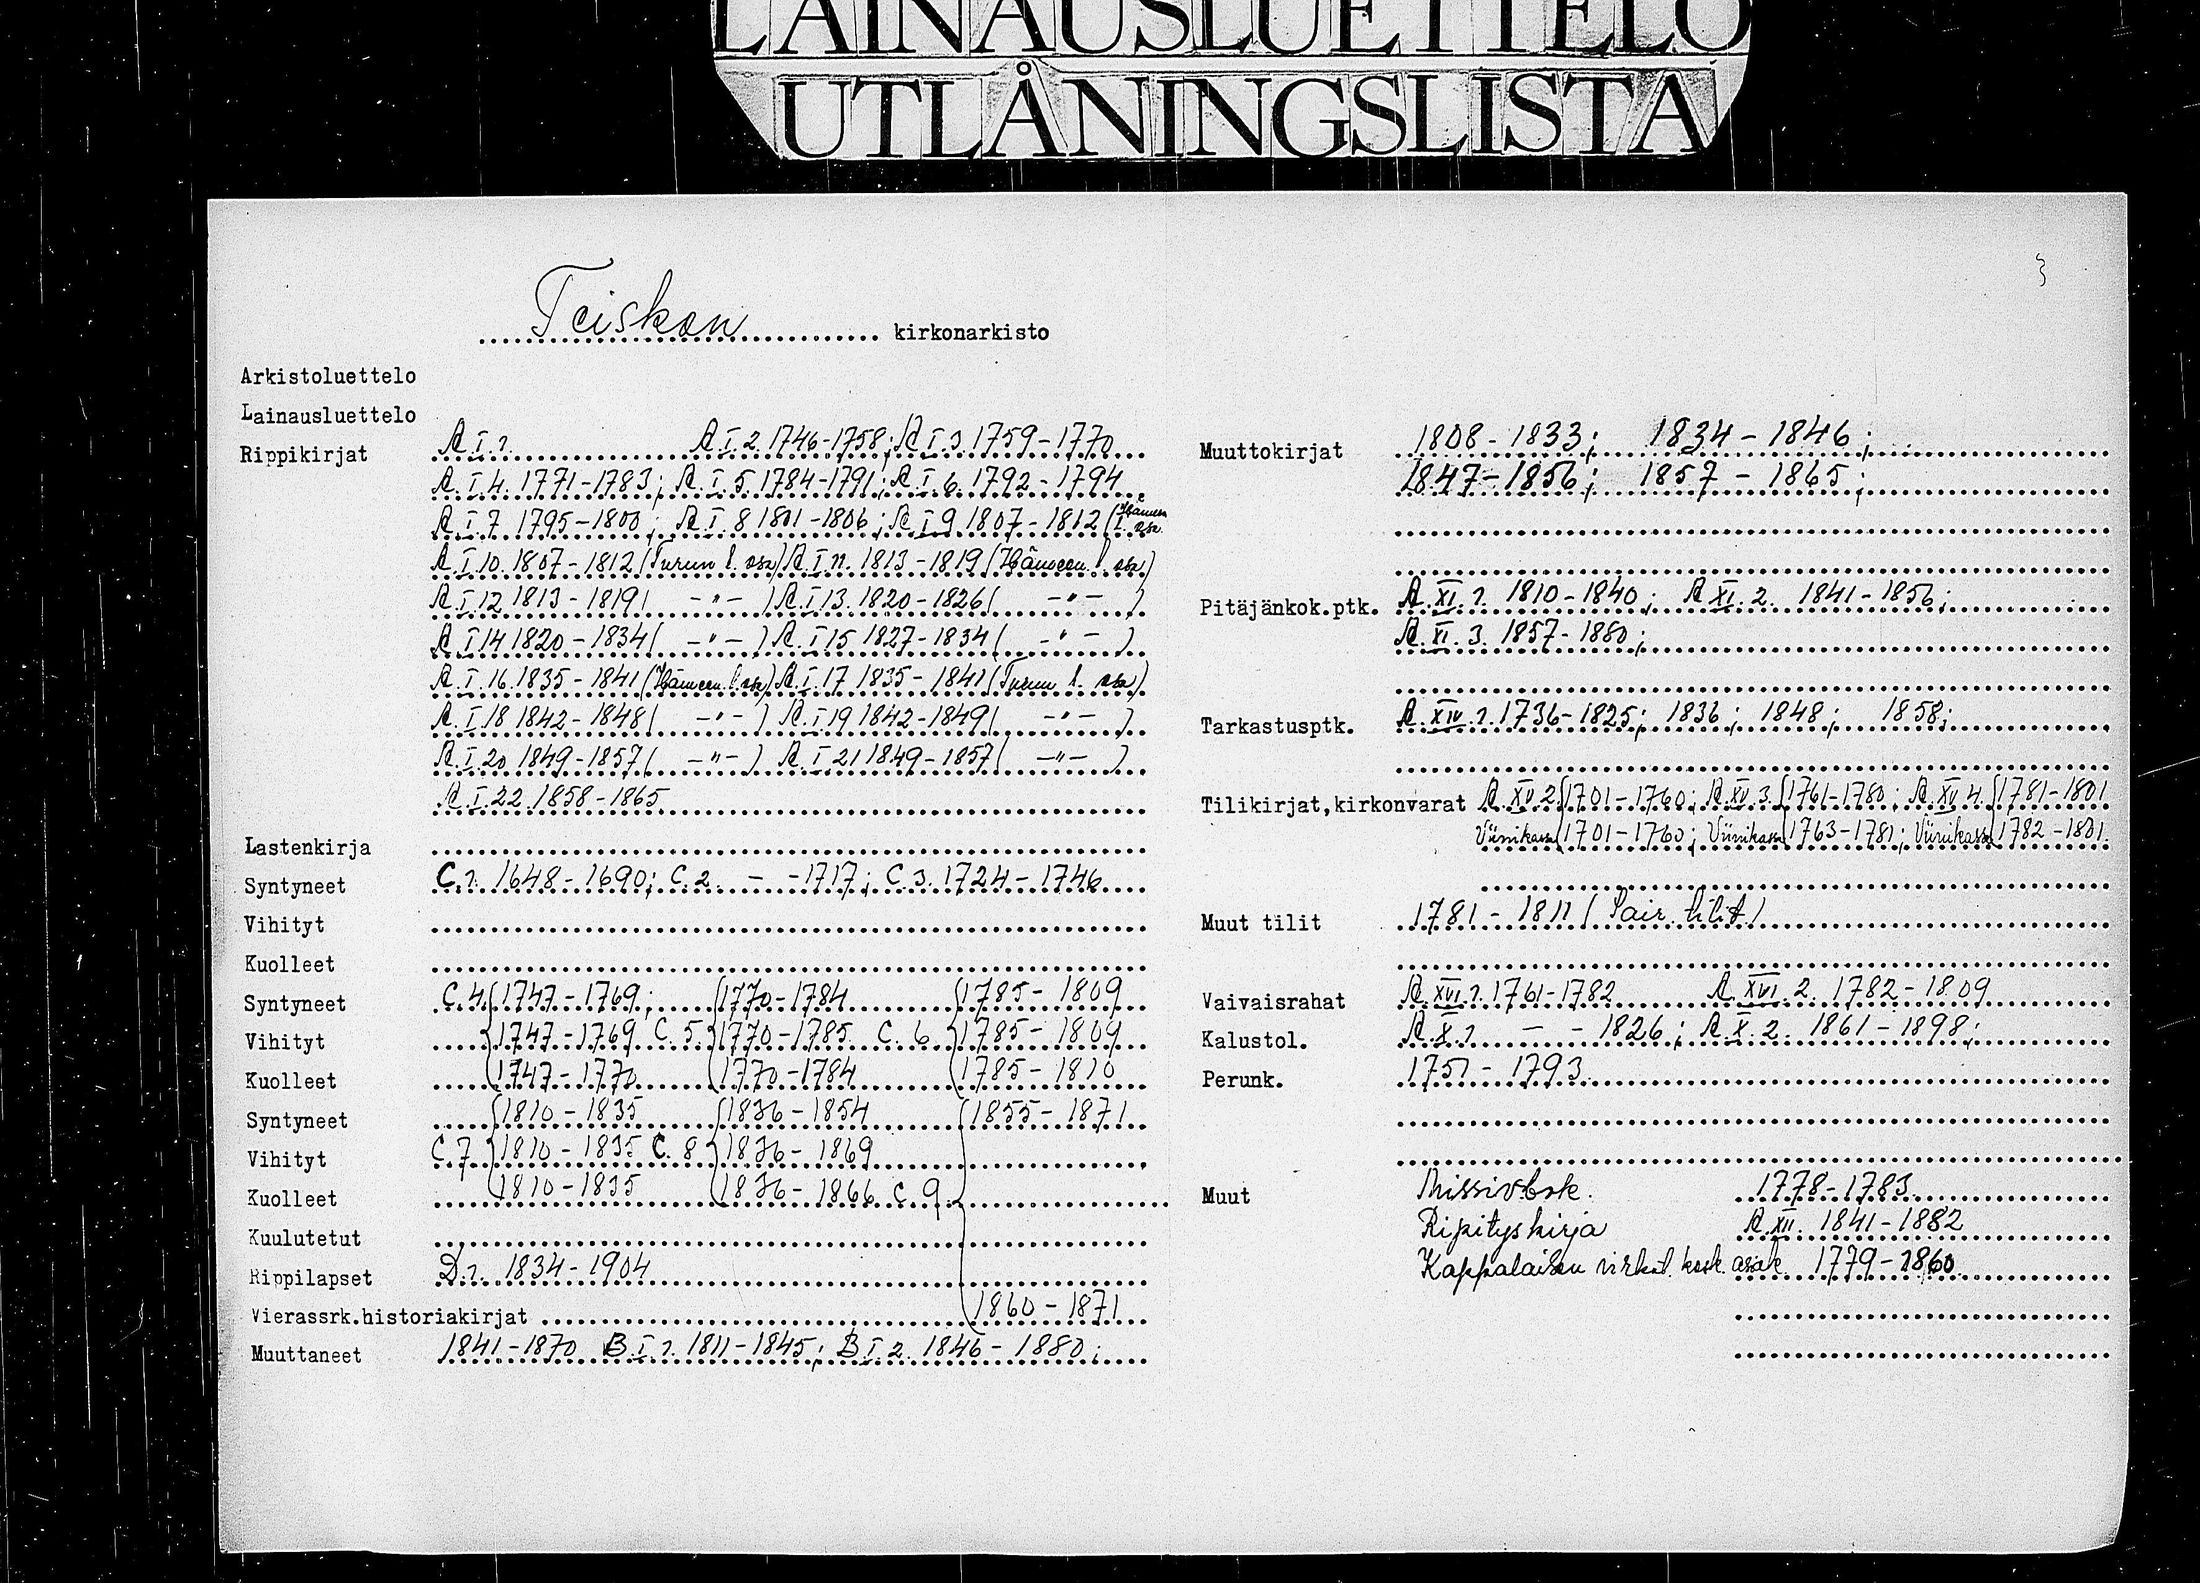 LAINAUSLUETTELO
UTLÅNINGSLISTA
3
Teiskon kirkonarkisto
Arkistoluettelo
Lainausluettelo
Rippikirjat A.I.1. A.I.2. 1746-1758; A.I.3. 1759-1770
A.I.4. 1771-1783; A.I.5. 1784-1791; A.I.6. 1792-1794
A.I.7 1795-1800; A.I.8 1801-1806; A.I.9 1807-1812 (Hämeen l. osa.
A.I.10. 1807-1812 (Turun l. osa) A.I.11. 1813-1819 (Hämeen l. osa)
A.I.12 1813-1819 ( -"- ) A.I.13. 1820-1826 ( -"- )
A.I.14 1820-1834 ( -"- ) A.I.15 1827-1834 ( -"- )
A.I.16. 1835-1841 (Hämeen l. osa) A.I.17 1835-1841 (Turun l. osa)
A.I.18 1842-1848 ( -"- ) A.I.19 1842-1849 ( -"- )
A.I.20 1849-1857 ( -"- ) A.I.21 1849-1857 ( -"- )
A.I.22. 1858-1865
Lastenkirja
Syntyneet C.1. 1648-1690; C.2. - -1717; C.3. 1724-1746
Vihityt
Kuolleet
Syntyneet C.4. 1747-1769; 1770-1784 1785-1809
Vihityt 1747-1769 C.5. 1770-1785 C.6. 1785-1809
Kuolleet 1747-1770 1770-1784 1785-1810
Syntyneet 1810-1835 1836-1854 1855-1871
Vihityt C.7 1810-1835 C.8 1836-1869
Kuolleet 1810-1835 1836-1866 C.9
Kuulutetut
Rippilapset D.1. 1834-1904
Vierassrk.historiakirjat 1860-1871
Muuttaneet 1841-1870 B.I.1. 1811-1845; B.I.2. 1846-1880;
Muuttokirjat 1808-1833; 1834-1846;
1847-1856; 1857-1865;
Pitäjänkok.ptk. A.XI.1. 1810-1840; A.XI.2. 1841-1856;
A.XI.3. 1857-1880;
Tarkastusptk. A.XIV.1. 1736-1825; 1836; 1848; 1858;
Tilikirjat,kirkonvarat A.XV.2. 1701-1760; A.XV.3. 1761-1780; A.XV.4. 1781-1801
Viinikassa 1701-1760; Viinikassa 1763-1781; Viinikassa 1782-1801.
Muut tilit 1781-1811 (Pair. tilit)
Vaivaisrahat A.XVI.1. 1761-1782 A.XVI.2. 1782-1809
Kalustol. A.X.1. - - 1826; A.X.2. 1861-1898;
Perunk. 1751-1793
Muut Missivbok. 1778-1783
Ripityskirja A.XII. 1841-1882
Kappalaisen virkat. kosk. asiak. 1779-1860